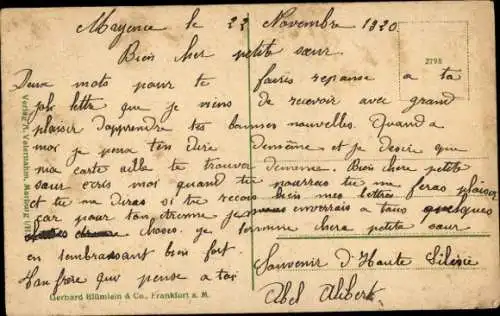 Mayence le 23 Novembre 1920
Bien cher petite sœur
Deux mots pour te faires reponse a ta
joli lettre que je viens de recevoir avec grand
plaisir d'apprendre tes bonnes nouvelles. Quand a
moi je pena ten dire demême et je desire que
ma carte ailla te trouver demême. Bien chere petite
sœur ecris moi quand tu pourrais tu me feras plaisir
et tu me diras si tu recois bien mes lettres
car pour ton etrenne je enverrais a tous quelques
choses. je termine chere petite sœur
en tembrassant bien fort.
Ton frère qui pense a toi
Souvenir d'Haute Silésie
Abel Alibert
2798
Verlag v. Valentin, Marburg
Gerhard Blümlein & Co., Frankfurt a. M.